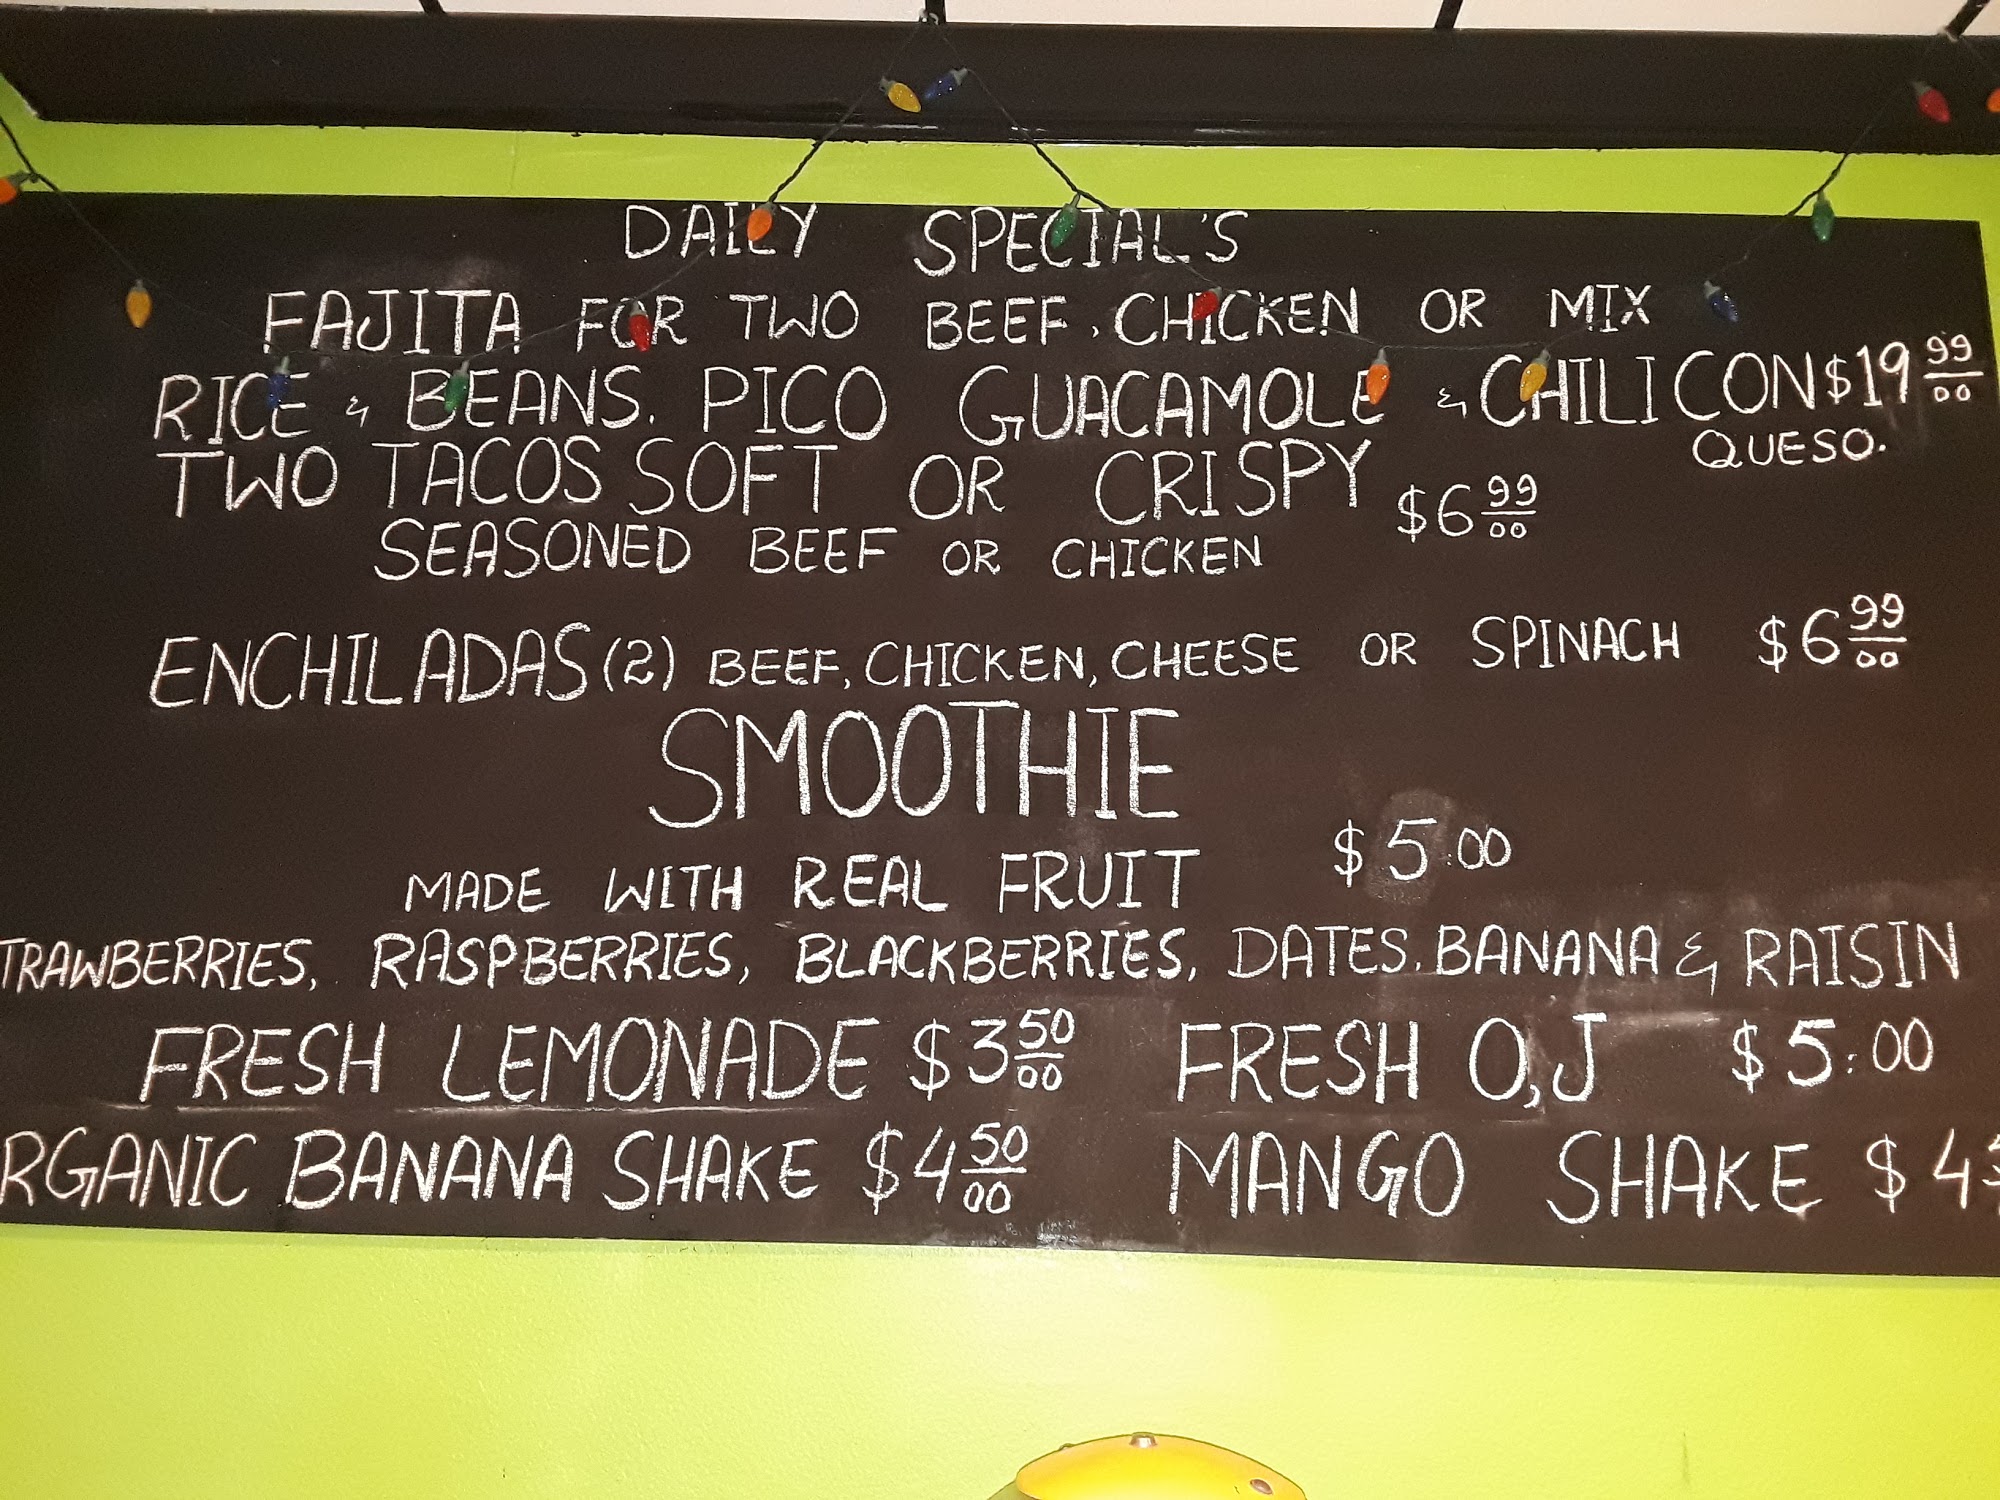 DAILY SPECIAL'S
FAJITA FOR TWO BEEF, CHICKEN OR MIX
RICE & BEANS. PICO GUACAMOLE & CHILI CON $19 99/00
QUESO.
TWO TACOS SOFT OR CRISPY $6 99/00
SEASONED BEEF OR CHICKEN
ENCHILADAS (2) BEEF, CHICKEN, CHEESE OR SPINACH $6 99/00
SMOOTHIE
MADE WITH REAL FRUIT $5.00
TRAWBERRIES, RASPBERRIES, BLACKBERRIES, DATES, BANANA & RAISIN
FRESH LEMONADE $3 50/00 FRESH O,J $5:00
RGANIC BANANA SHAKE $4 50/00 MANGO SHAKE $4